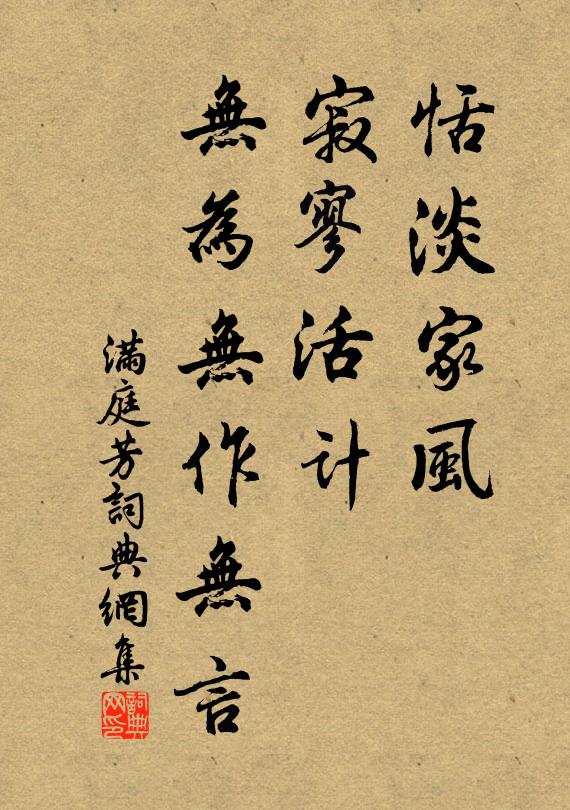 恬淡家風
寂寥活計
無為無作無言
滿庭芳詞典網集
詞典
网印